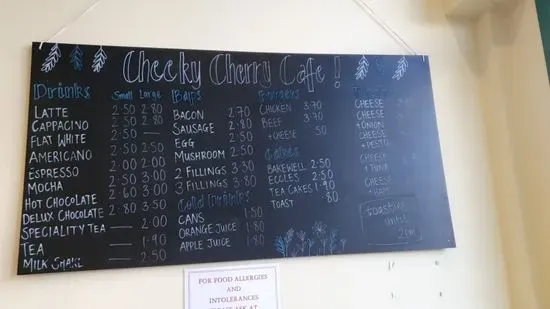 Cheeky Cherry Cafe!
Drinks Small Large
LATTE 2.50 2.80
CAPPACINO 2.50 2.80
FLAT WHITE 2.50 —
AMERICANO 2.50 2.80
ESPRESSO 2.00 2.00
MOCHA 2.50 3.00
HOT CHOCOLATE 2.60 3.00
DELUX CHOCOLATE 2.80 3.50
SPECIALITY TEA — 2.00
TEA — 1.90
MILK SHAKE — 2.50
Baps
BACON 2.70
SAUSAGE 2.80
EGG 2.50
MUSHROOM 2.50
2 FILLINGS 3.30
3 FILLINGS 3.80
Cold Drinks
CANS 1.50
ORANGE JUICE 1.80
APPLE JUICE 1.80
Burgers
CHICKEN 3.70
BEEF 3.70
+CHEESE 50
Cakes
BAKEWELL 2.50
ECCLES 2.50
TEA CAKES 1.90
TOAST .80
CHEESE
CHEESE
+ONION
CHEESE
+PESTO
CHEESE
+TUNA
CHEESE
+HAM
toasties
until
2pm
FOR FOOD ALLERGIES
AND
INTOLERANCES
PLEASE ASK AT